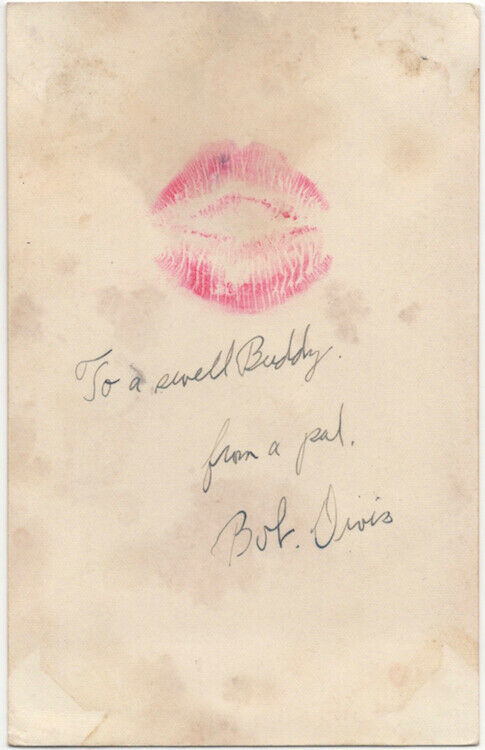 To a swell Buddy.
from a pal.
Bob. Divis